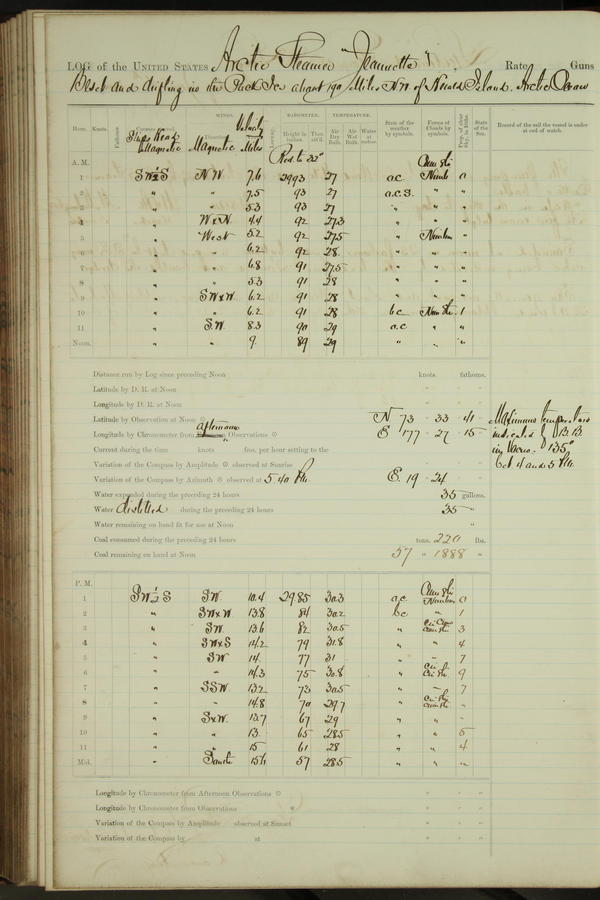 LOG of the UNITED STATES Arctic Steamer "Jeannette" Rate Guns
Beset and drifting in the Pack Ice about 190 Miles NW of Herald Island. Arctic Ocean
Hour. Knots. Fathoms Ship's Head Magnetic WINDS. Magnetic Velocity Miles BAROMETER. Height in inches Ther. att'd. TEMPERATURE. Air Dry Bulb. Air Wet Bulb. Water at surface. State of the weather by symbols. Forms of Clouds by symbols. Prop. of clear Sky, in 10ths. State of the Sea. Record of sail the vessel is under at end of watch.
A. M. Red to 32° Cum Str
1 SW½S NW 7.6 2993 27 a.c. Nimb 0
2 " " 7.5 93 27 a.c.s. " "
3 " " 5.3 93 27 " " "
4 " WxN 4.4 92 27.3 " " "
5 " West 5.2 92 27.5 " Nimbus "
6 " " 6.2 92 28 " " "
7 " " 6.8 91 27.5 " " "
8 " " 5.3 91 28 " " "
9 " SWxW 6.2 91 28 " " "
10 " " 6.2 91 28 b c Num Str 1
11 " S.W. 8.3 90 29 a.c " "
Noon. " " 9. 89 29 " " "
Distance run by Log since preceding Noon knots. fathoms.
Latitude by D. R. at Noon
Longitude by D. R. at Noon
Latitude by Observation at Noon N 73 33 41
Longitude by Chronometer from afternoon Observations E 177 27 15
Maximum temperature
indicated by
in Vacuo 135°
bet 4 and 5 P.M.
Current during the time knots fms. per hour setting to the
Variation of the Compass by Amplitude observed at Sunrise
Variation of the Compass by Azimuth observed at 5.40 P.M. E. 19 24
Water expended during the preceding 24 hours 35 gallons.
Water distilled during the preceding 24 hours 35 "
Water remaining on hand fit for use at Noon "
Coal consumed during the preceding 24 hours tons. 220 lbs.
Coal remaining on hand at Noon 57 " 1888 "
P. M. Cum Str
1 SW½S SW. 10.4 29.85 30.3 a.c. Nimbus 0
2 " SWxW 13.8 84 30.2 bc " 1
3 " SW. 13.6 82 30.5 " Cir Cum Cum Str 3
4 " SWxS 14.2 79 31.8 " " 4
5 " SW 14. 77 31 " " 7
6 " " 14.3 75 30.8 " Cir S. Cir Str 9
7 " SSW 13.2 73 30.5 " " 7
8 " " 14.8 70 29.7 " Cir Str Cum Str "
9 " SxW. 13.7 67 29 " " "
10 " " 13 65 28.5 " " 5
11 " " 15 61 28 " " 4
Mid. " South 15½ 57 28.5 " " "
Longitude by Chronometer from Afternoon Observations
Longitude by Chronometer from Observations
Variation of the Compass by Amplitude observed at Sunset
Variation of the Compass by at